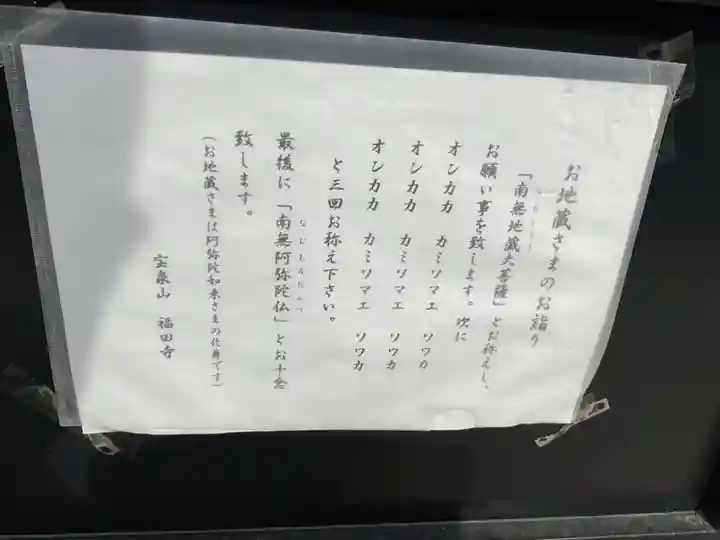 お地蔵さまのお詣り
「南無地蔵大菩薩」とお称えし、
お願い事を致します。次に
オンカカ カミソマエ ソワカ
オンカカ カミソマエ ソワカ
オンカカ カミソマエ ソワカ
と三回お称え下さい。
最後に「南無阿弥陀仏」とお十念
なむあみだぶつ
致します。
(お地蔵さまは阿弥陀如来さまの化身です)
宝泉山 福田寺